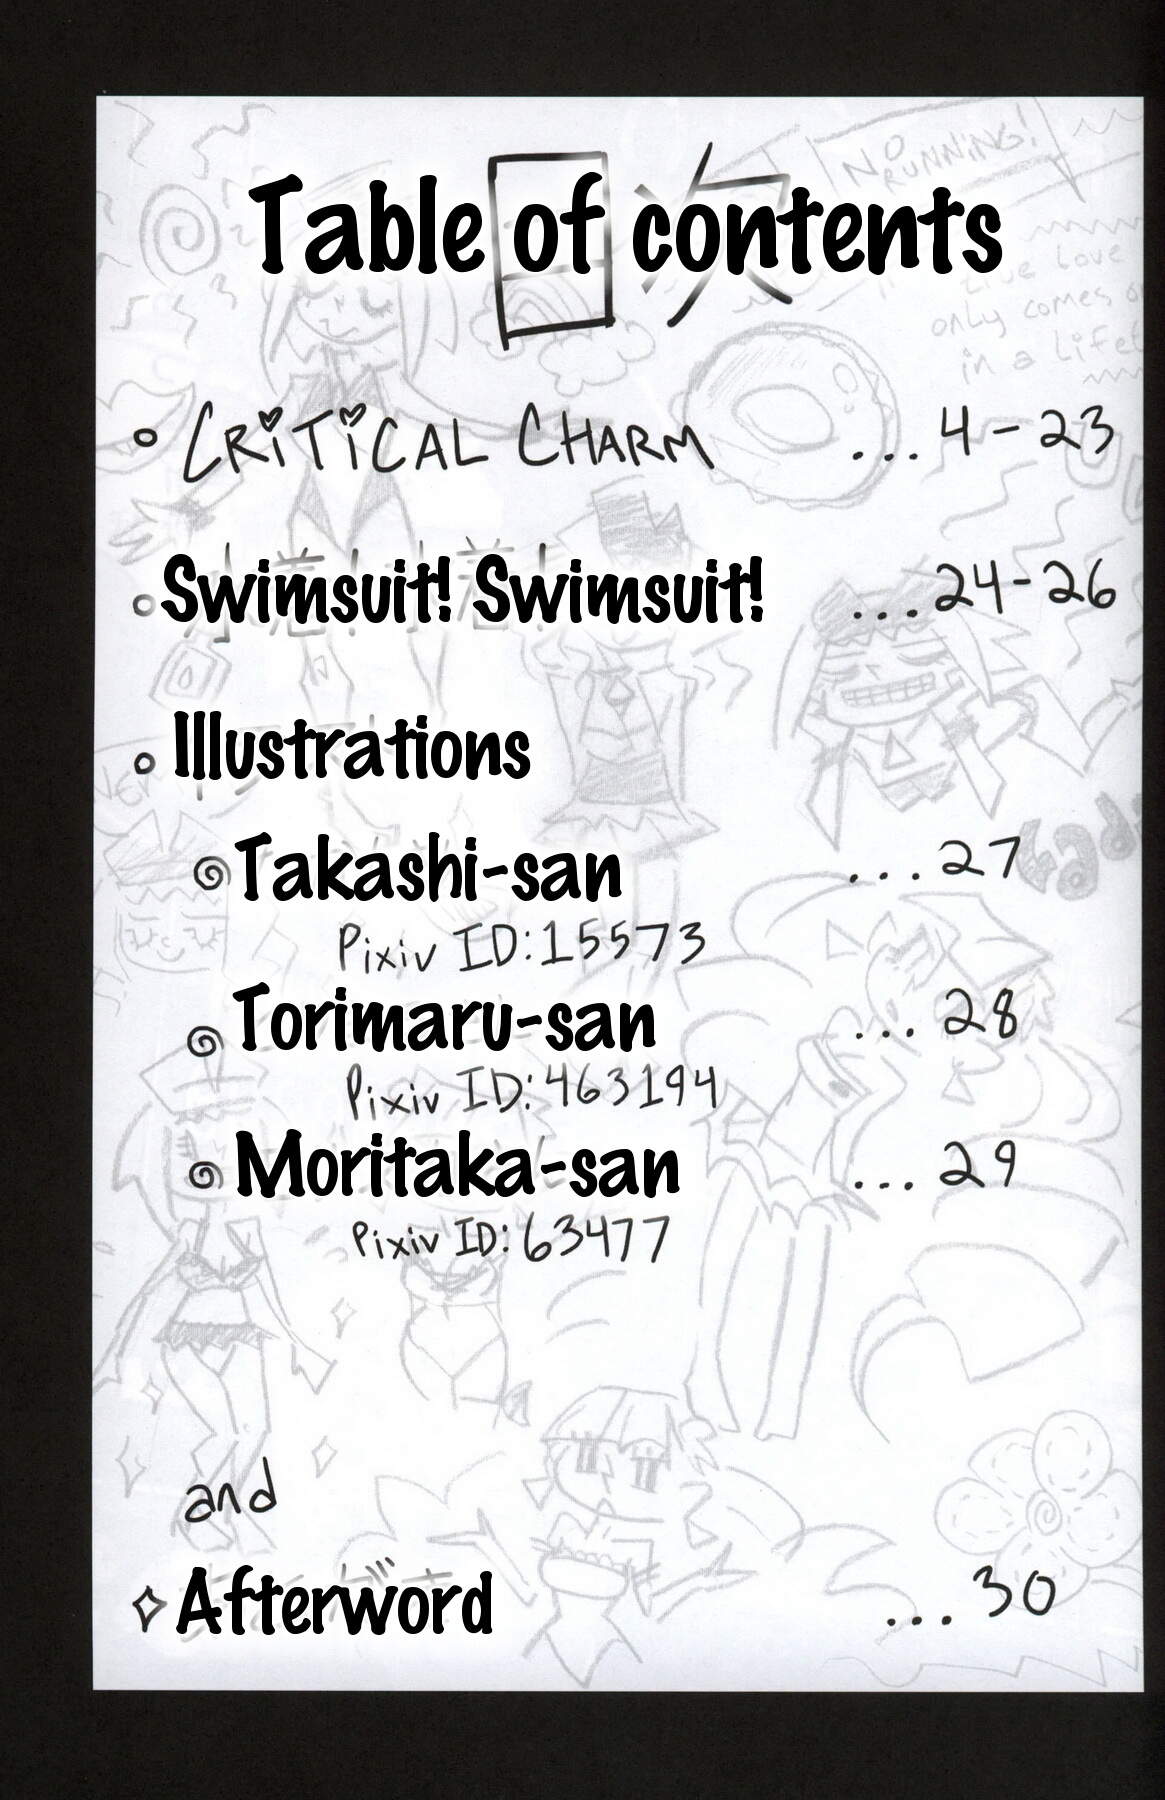 NO RUNNING!
Table of contents
目次
love
only comes
in a
CRITICAL CHARM ...4-23
Swimsuit! Swimsuit! ...24-26
Illustrations
Takashi-san ...27
Pixiv ID:15573
Torimaru-san ...28
Pixiv ID:463194
Moritaka-san ...29
Pixiv ID:63477
and
Afterword ...30